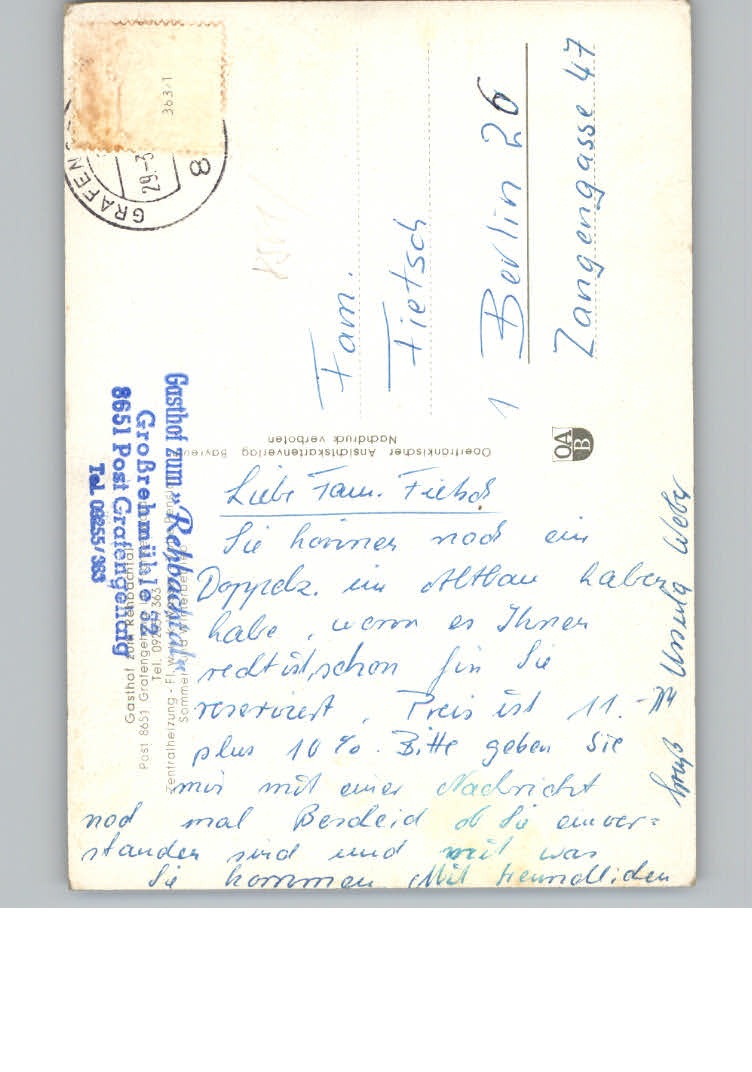 Liebe Fam. Fietsch
Sie können noch ein
Doppelz. im Altbau haben
habe, wenn es Ihnen
recht ist, schon für Sie
reserviert. Preis ist 11.- DM
plus 10 %. Bitte geben Sie
mir mit einer Nachricht
noch mal Bescheid ob Sie einver=
standen sind und mit was
Sie kommen. Mit freundlichen
Gruß Ursula Weber
Fam.
Fietsch
1 Berlin 26
Zangengasse 47
Gasthof zum „Rehbachtale“
Großrehmühle 12
8651 Post Grafengehaig
Tel. 09255/363
Gasthof zum Rehbachtal
Post 8651 Grafengehaig
Tel. 09255/363
Zentralheizung - Fl. w.
Oberfränkischer Ansichtskartenverlag Bayreuth
Nachdruck verboten
OA
B
GRAFENG
29.-3
8
363/1